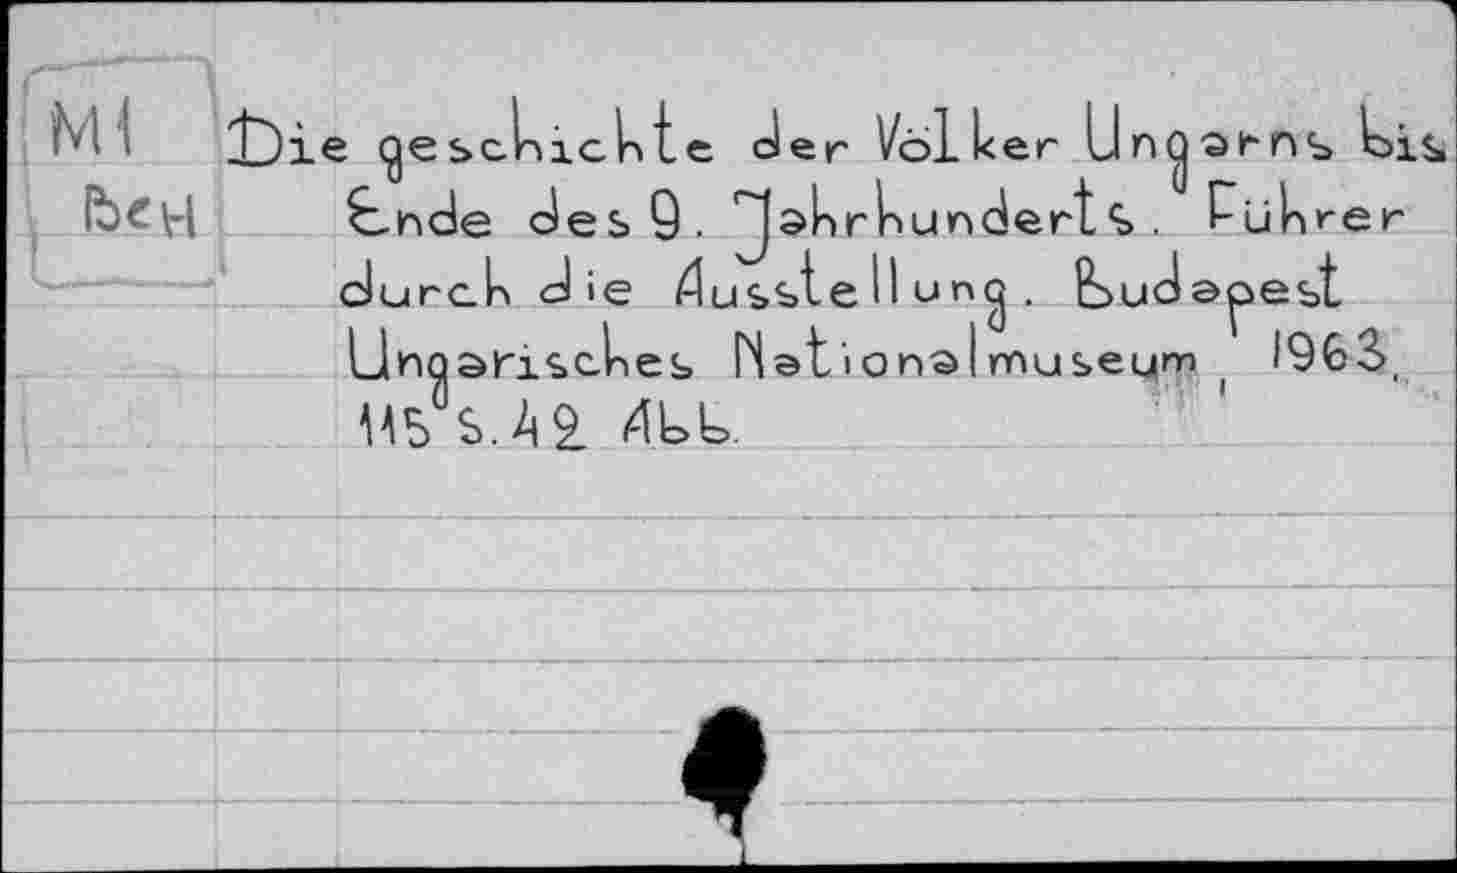 M1
Die geschichte der Völker Ungarns bis
Ende des 9. Jahrhunderts. Führer
durch die Ausstellung. Budapest
Ungarisches Nationalmuseum, 1963,
115 S. 42 Abb.